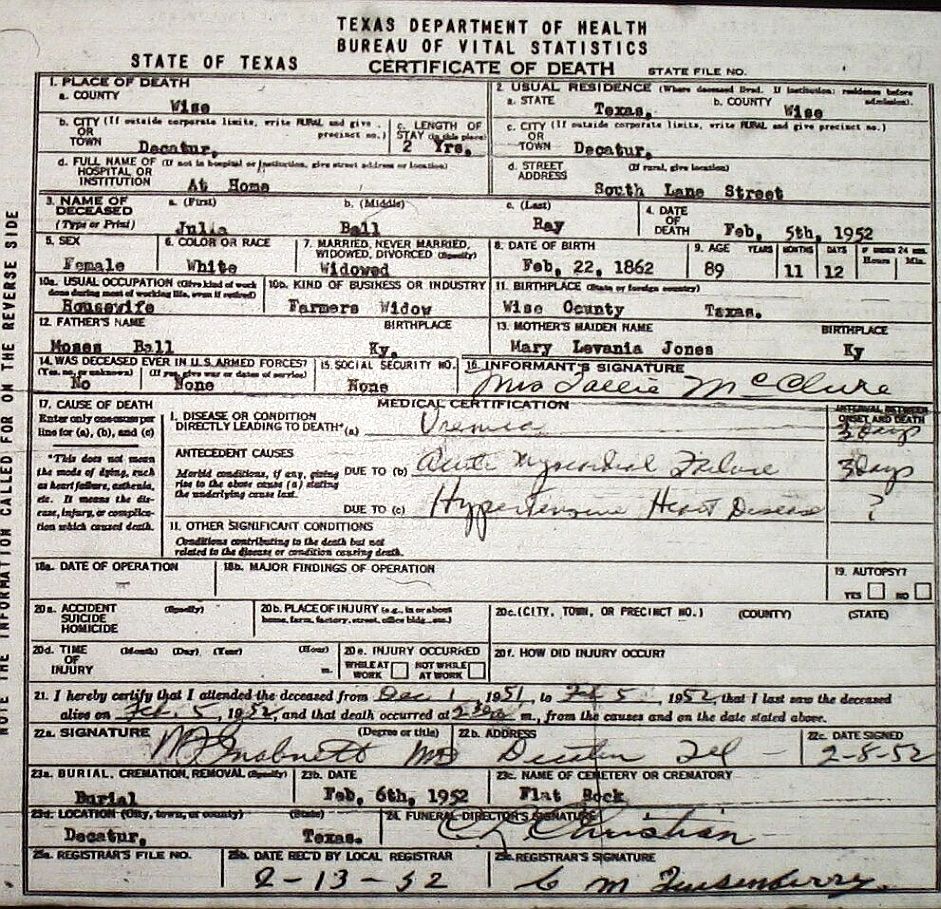 TEXAS DEPARTMENT OF HEALTH
BUREAU OF VITAL STATISTICS
STATE OF TEXAS
CERTIFICATE OF DEATH STATE FILE NO.
1. PLACE OF DEATH
a. COUNTY
Wise
2. USUAL RESIDENCE (Where deceased lived. If institution: residence before admission).
a. STATE Texas, b. COUNTY Wise
b. CITY (If outside corporate limits, write RURAL and give precinct no.)
OR
TOWN Decatur,
c. LENGTH OF
STAY (in this place)
2 Yrs.
c. CITY (If outside corporate limits, write RURAL and give precinct no.)
OR
TOWN Decatur,
d. FULL NAME OF (If not in hospital or institution, give street address or location)
HOSPITAL OR
INSTITUTION At Home
d. STREET (If rural, give location)
ADDRESS South Lane Street
3. NAME OF a. (First) b. (Middle) c. (Last)
DECEASED
(Type or Print) Julia Ball Ray
4. DATE
OF
DEATH Feb, 5th, 1952
5. SEX
Female
6. COLOR OR RACE
White
7. MARRIED, NEVER MARRIED,
WIDOWED, DIVORCED (Specify)
Widowed
8. DATE OF BIRTH
Feb, 22, 1862
9. AGE YEARS MONTHS DAYS IF UNDER 24 HRS.
Hours Min.
89 11 12
10a. USUAL OCCUPATION (Give kind of work
done during most of working life, even if retired)
Housewife
10b. KIND OF BUSINESS OR INDUSTRY
Farmers Widow
11. BIRTHPLACE (State or foreign country)
Wise County Texas.
12. FATHER'S NAME BIRTHPLACE
Moses Ball Ky.
13. MOTHER'S MAIDEN NAME BIRTHPLACE
Mary Levania Jones Ky
14. WAS DECEASED EVER IN U.S. ARMED FORCES?
(Yes, no, or unknown) (If yes, give war or dates of service)
No None
15. SOCIAL SECURITY NO.
None
16. INFORMANT'S SIGNATURE
Mrs Tallie McClure
17. CAUSE OF DEATH
Enter only one cause per
line for (a), (b), and (c)
MEDICAL CERTIFICATION
INTERVAL BETWEEN
ONSET AND DEATH
I. DISEASE OR CONDITION
DIRECTLY LEADING TO DEATH* (a) Uremia 3 days
*This does not mean
the mode of dying, such
as heart failure, asthenia,
etc. It means the dis-
ease, injury, or complica-
tion which caused death.
ANTECEDENT CAUSES
Morbid conditions, if any, giving
rise to the above cause (a) stating
the underlying cause last.
DUE TO (b) Acute Myocardial Failure 3 Days
DUE TO (c) Hypertensive Heart Disease ?
II. OTHER SIGNIFICANT CONDITIONS
Conditions contributing to the death but not
related to the disease or condition causing death.
18a. DATE OF OPERATION
18b. MAJOR FINDINGS OF OPERATION
19. AUTOPSY?
YES NO
20a. ACCIDENT (Specify)
SUICIDE
HOMICIDE
20b. PLACE OF INJURY (e.g., in or about
home, farm, factory, street, office bldg., etc.)
20c. (CITY, TOWN, OR PRECINCT NO.) (COUNTY) (STATE)
20d. TIME (Month) (Day) (Year) (Hour)
OF
INJURY m.
20e. INJURY OCCURRED
WHILE AT WORK NOT WHILE AT WORK
20f. HOW DID INJURY OCCUR?
21. I hereby certify that I attended the deceased from Dec 1, 1951, to Feb 5, 1952, that I last saw the deceased
alive on Feb. 5, 1952, and that death occurred at m., from the causes and on the date stated above.
22a. SIGNATURE (Degree or title)
MD
22b. ADDRESS
Decatur
22c. DATE SIGNED
2-8-52
23a. BURIAL, CREMATION, REMOVAL (Specify)
Burial
23b. DATE
Feb, 6th, 1952
23c. NAME OF CEMETERY OR CREMATORY
Flat Rock
23d. LOCATION (City, town, or county) (State)
Decatur, Texas.
24. FUNERAL DIRECTOR'S SIGNATURE
Christian
25a. REGISTRAR'S FILE NO.
25b. DATE REC'D BY LOCAL REGISTRAR
2-13-52
25c. REGISTRAR'S SIGNATURE
C M
NOTE THE INFORMATION CALLED FOR ON THE REVERSE SIDE